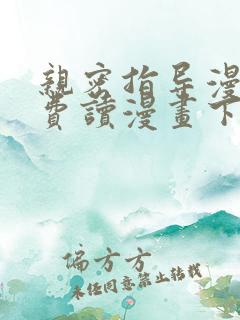 親密指导漫
費讀漫畫下
偏方方
未经同意禁止转载